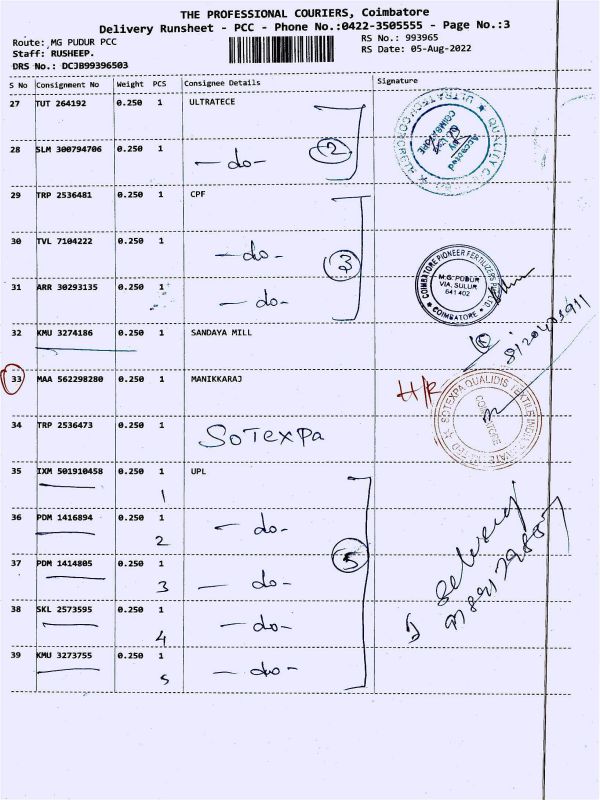 THE PROFESSIONAL COURIERS, Coimbatore
Delivery Runsheet - PCC - Phone No.:0422-3505555 - Page No.:3
Route: MG PUDUR PCC
RS No.: 993965
Staff: RUSHEEP.
RS Date: 05-Aug-2022
DRS No.: DCJB99396503
S No Consignment No Weight PCS Consignee Details Signature
27 TUT 264192 0.250 1 ULTRATECE
28 SLM 300794706 0.250 1 -do- 2
29 TRP 2536481 0.250 1 CPF
30 TVL 7104222 0.250 1 -do- 3
31 ARR 30293135 0.250 1 -do-
COIMBATORE PIONEER FERTILIZERS
M.G. PUDUR
VIA, SULUR
641 402
COIMBATORE
32 KMU 3274186 0.250 1 SANDAYA MILL
33 MAA 562298280 0.250 1 MANIKKARAJ H/R
34 TRP 2536473 0.250 1 SOTEXPA
SOTEXPA QUALIDIS TEXTILE
COIMBATORE
35 IXM 501910458 0.250 1 UPL
1
36 PDM 1416894 0.250 1 -do-
2
37 PDM 1414805 0.250 1 -do- 5
3
38 SKL 2573595 0.250 1 -do-
4
39 KMU 3273755 0.250 1 -do-
5